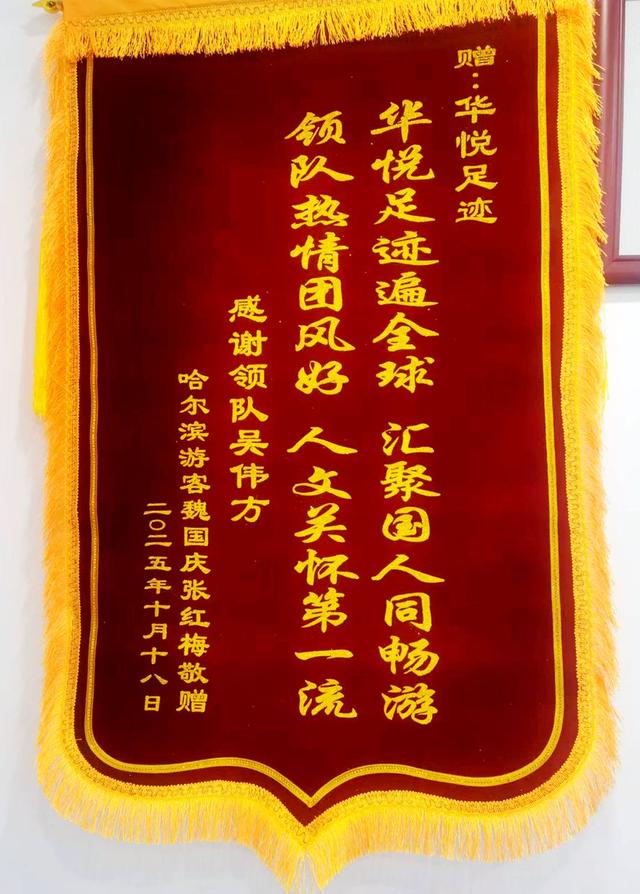 赠：华悦足迹
华悦足迹遍全球 汇聚国人同畅游
领队热情团风好 人文关怀第一流
感谢领队吴伟方
哈尔滨游客魏国庆张红梅敬赠
二〇二五年十月十八日